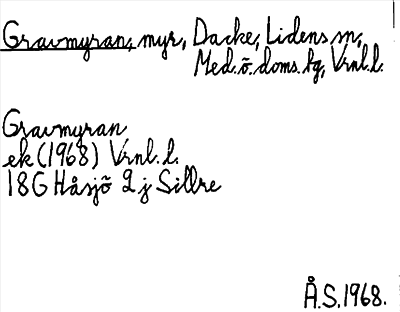 Gravmyran, myr, Dacke, Lidens sn,
Med.ö.doms.hg, Vrnl.l.
Gravmyran
ek (1968) Vrnl.l.
18G Håsjö 2 j Sillre
Å.S.1968.